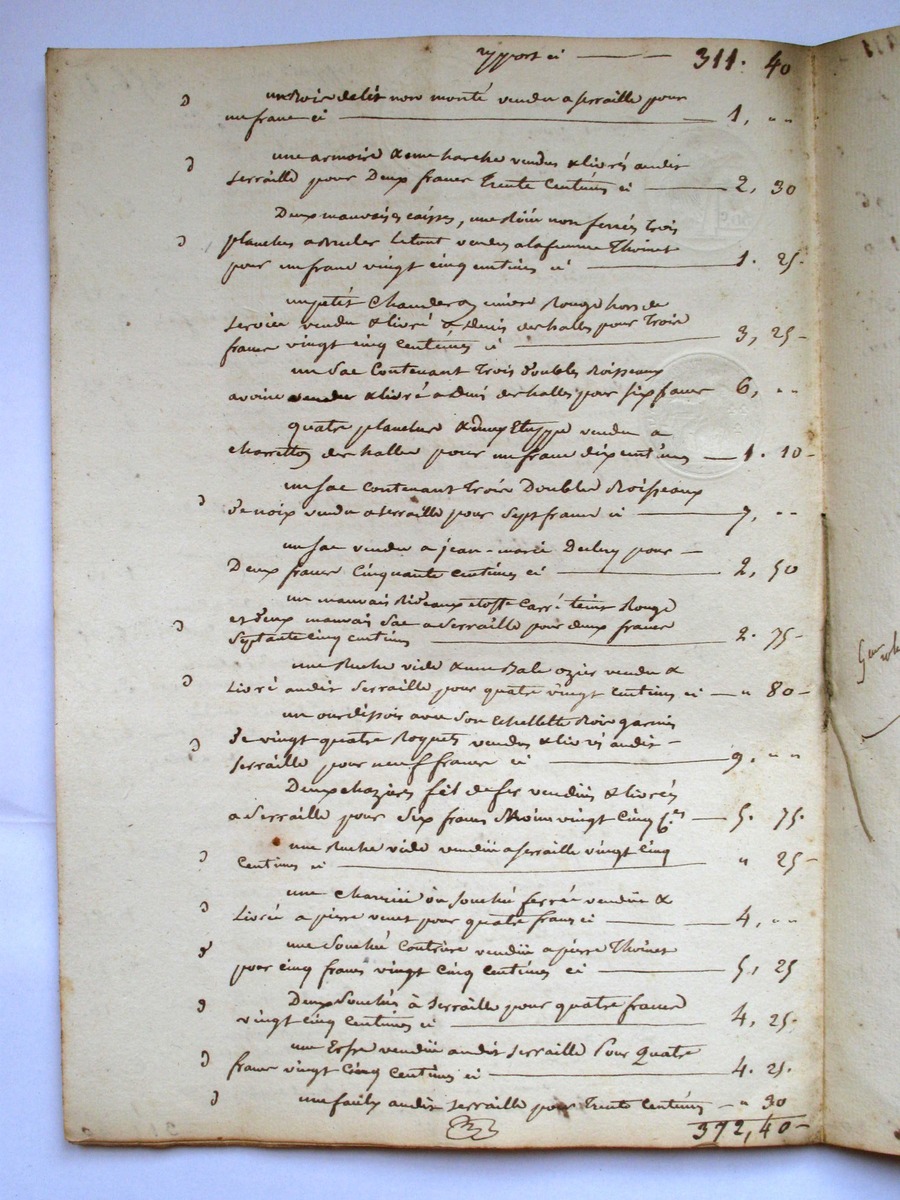 rapport ci 311. 40
un Bois de lit non monté vendu a Serraille pour
un franc ci 1, " "
une armoire & une harche vendus & livrés audit
Serraille pour Deux francs Trente Centimes ci 2, 30
Deux mauvaises caisses, une non ferrés Trois
planches a Bruler le tout vendus a la femme Thoinet
pour un franc vingt cinq centimes ci 1. 25
un petit Chauderon cuivre Rouge hors de
Service vendu & livré a Denis deshalles pour Trois
francs vingt cinq Centimes ci 3, 25
un Sac Contenant Trois Doubles Boisseaux
avoine vendu & livré a Denis deshalles pour Six francs 6, " "
quatre planches & vendu a
charretton des halles pour un franc dix centimes 1. 10
un Sac Contenant Trois Doubles Boisseaux
de noix vendu a Serraille pour Sept francs ci 7, " "
un Sac vendu a jean-marie pour
Deux francs Cinquante Centimes ci 2, 50
un mauvais Rideaux etoffe Carré teint Rouge
et deux mauvais Sac a Serraille pour deux francs
Septante Cinq centimes 2. 75
une Ruche vide & une Bale ozier vendu &
Livré audit Serraille pour quatre vingt Centimes ci " 80
un ourdissoir avec Son Echellette Bois garnis
De vingt quatre Roquets vendus & livrés audit
Serraille pour neuf francs ci 9, " "
Deux fil de fer vendues & livrés
a Serraille pour Six francs Moins vingt Cinq c.es 5. 75
une Ruche vide vendüe a Serraille vingt Cinq
Centimes ci " 25
une ou Souche ferrée vendüe &
Livrée a pierre venet pour quatre francs ci 4, " "
une Souche Contrere vendüe a pierre Thoinet
pour cinq francs vingt Cinq Centimes ci 5, 25
Deux Souches à Serraille pour quatre francs
vingt Cinq Centimes ci 4, 25
une Erse vendüe audit Serraille Pour Quatre
francs vingt Cinq Centimes ci 4. 25
une faulx audit Serraille pour Trente Centimes " 30
372, 40